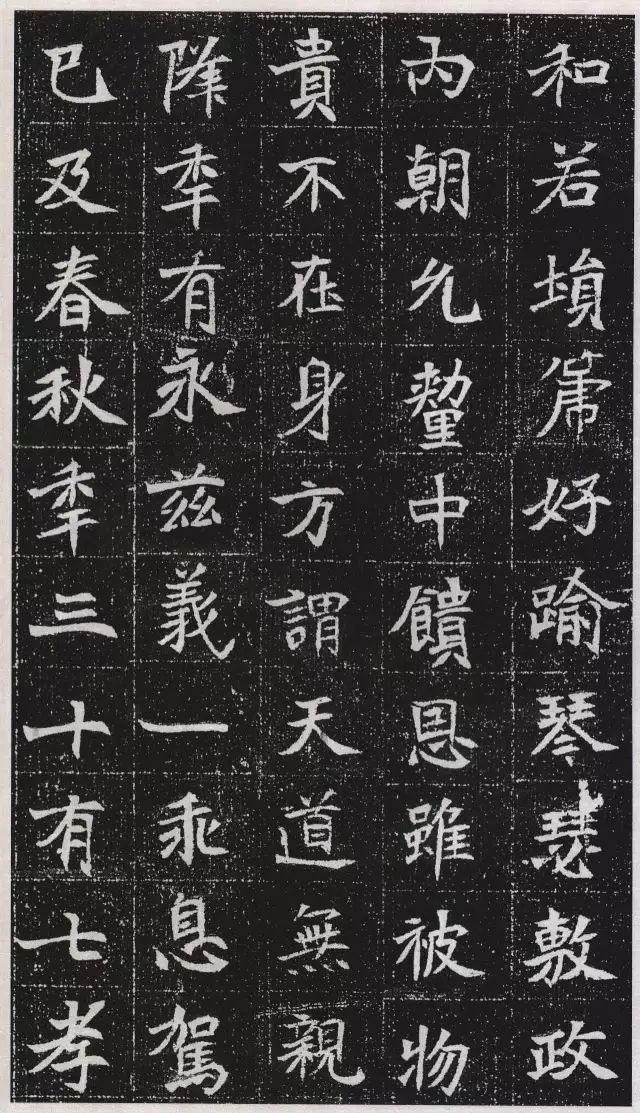 和若埙箎好踰琴瑟敷政
內朝允釐中饋恩雖被物
貴不在身方謂天道無親
隆年有永兹義一乖息駕
巳及春秋年三十有七孝